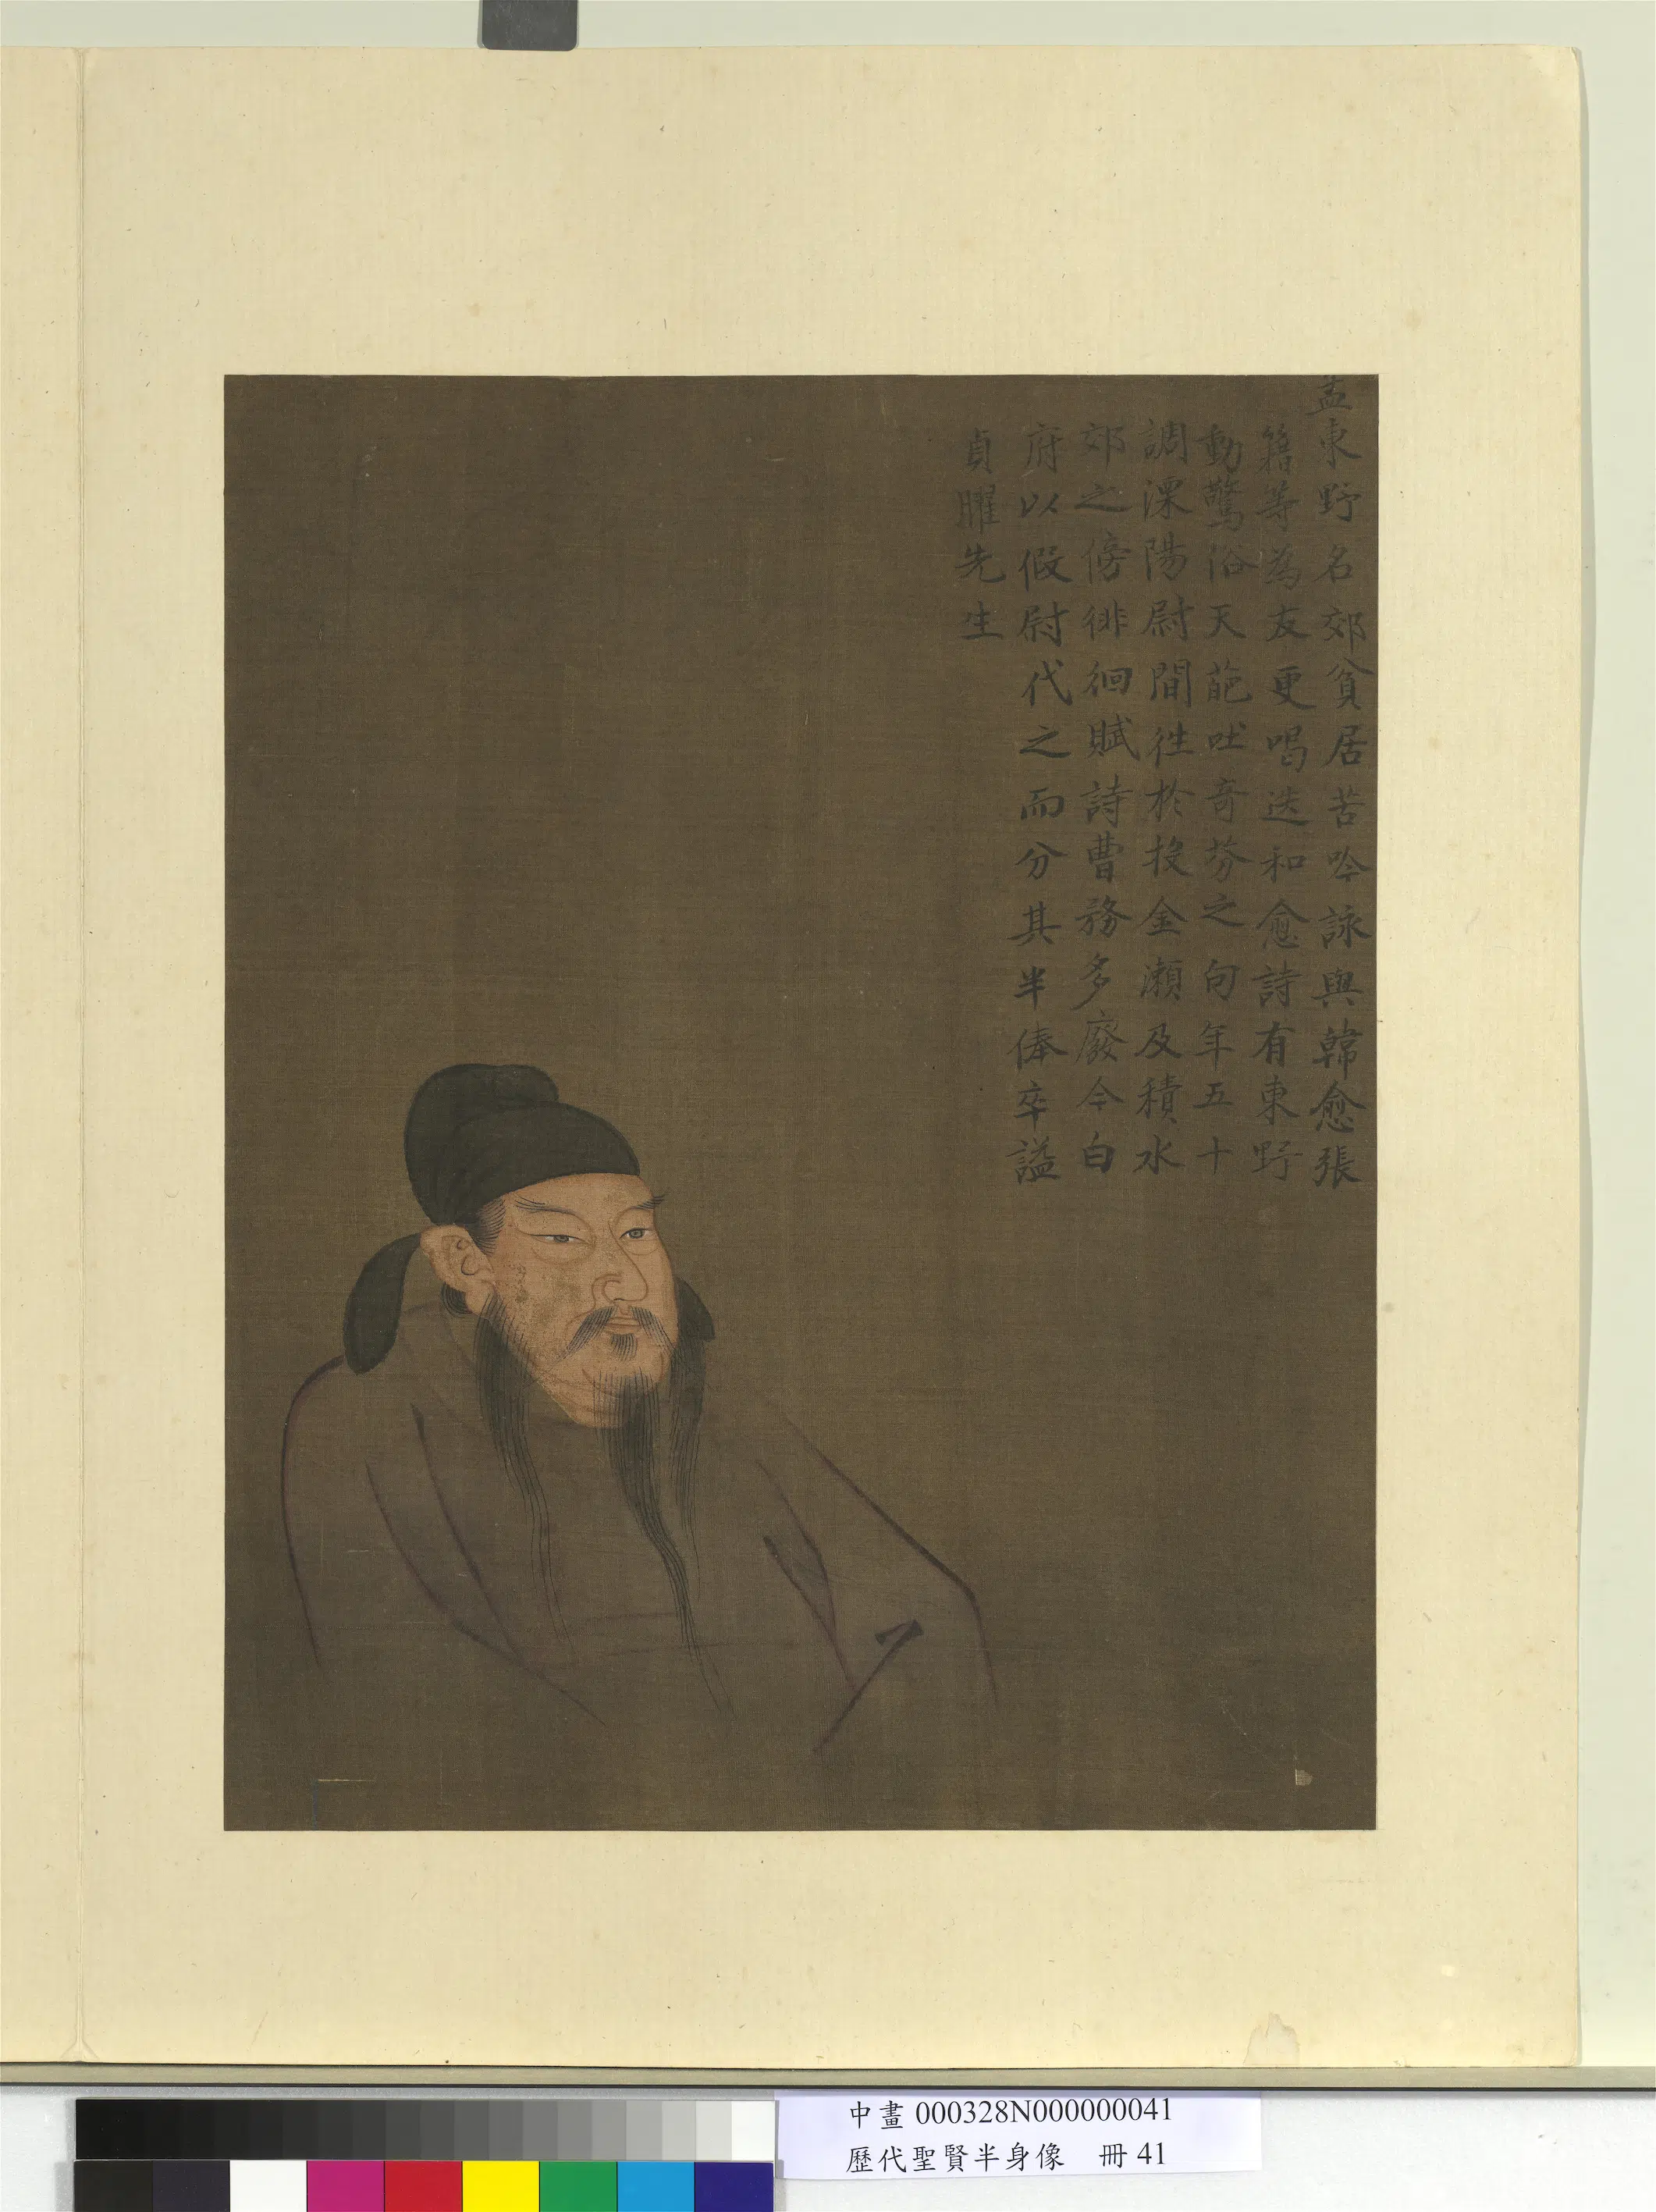 孟東野名郊貧居苦吟詠與韓愈張
籍等為友更喝迭和愈詩有東野
動驚俗天葩吐竒芬之句年五十
調溧陽尉間徃於投金瀨及積水
郊之傍徘徊賦詩曹務多廢令白
府以假尉代之而分其半俸卒謚
貞曜先生
中畫 000328N000000041
歷代聖賢半身像 冊 41